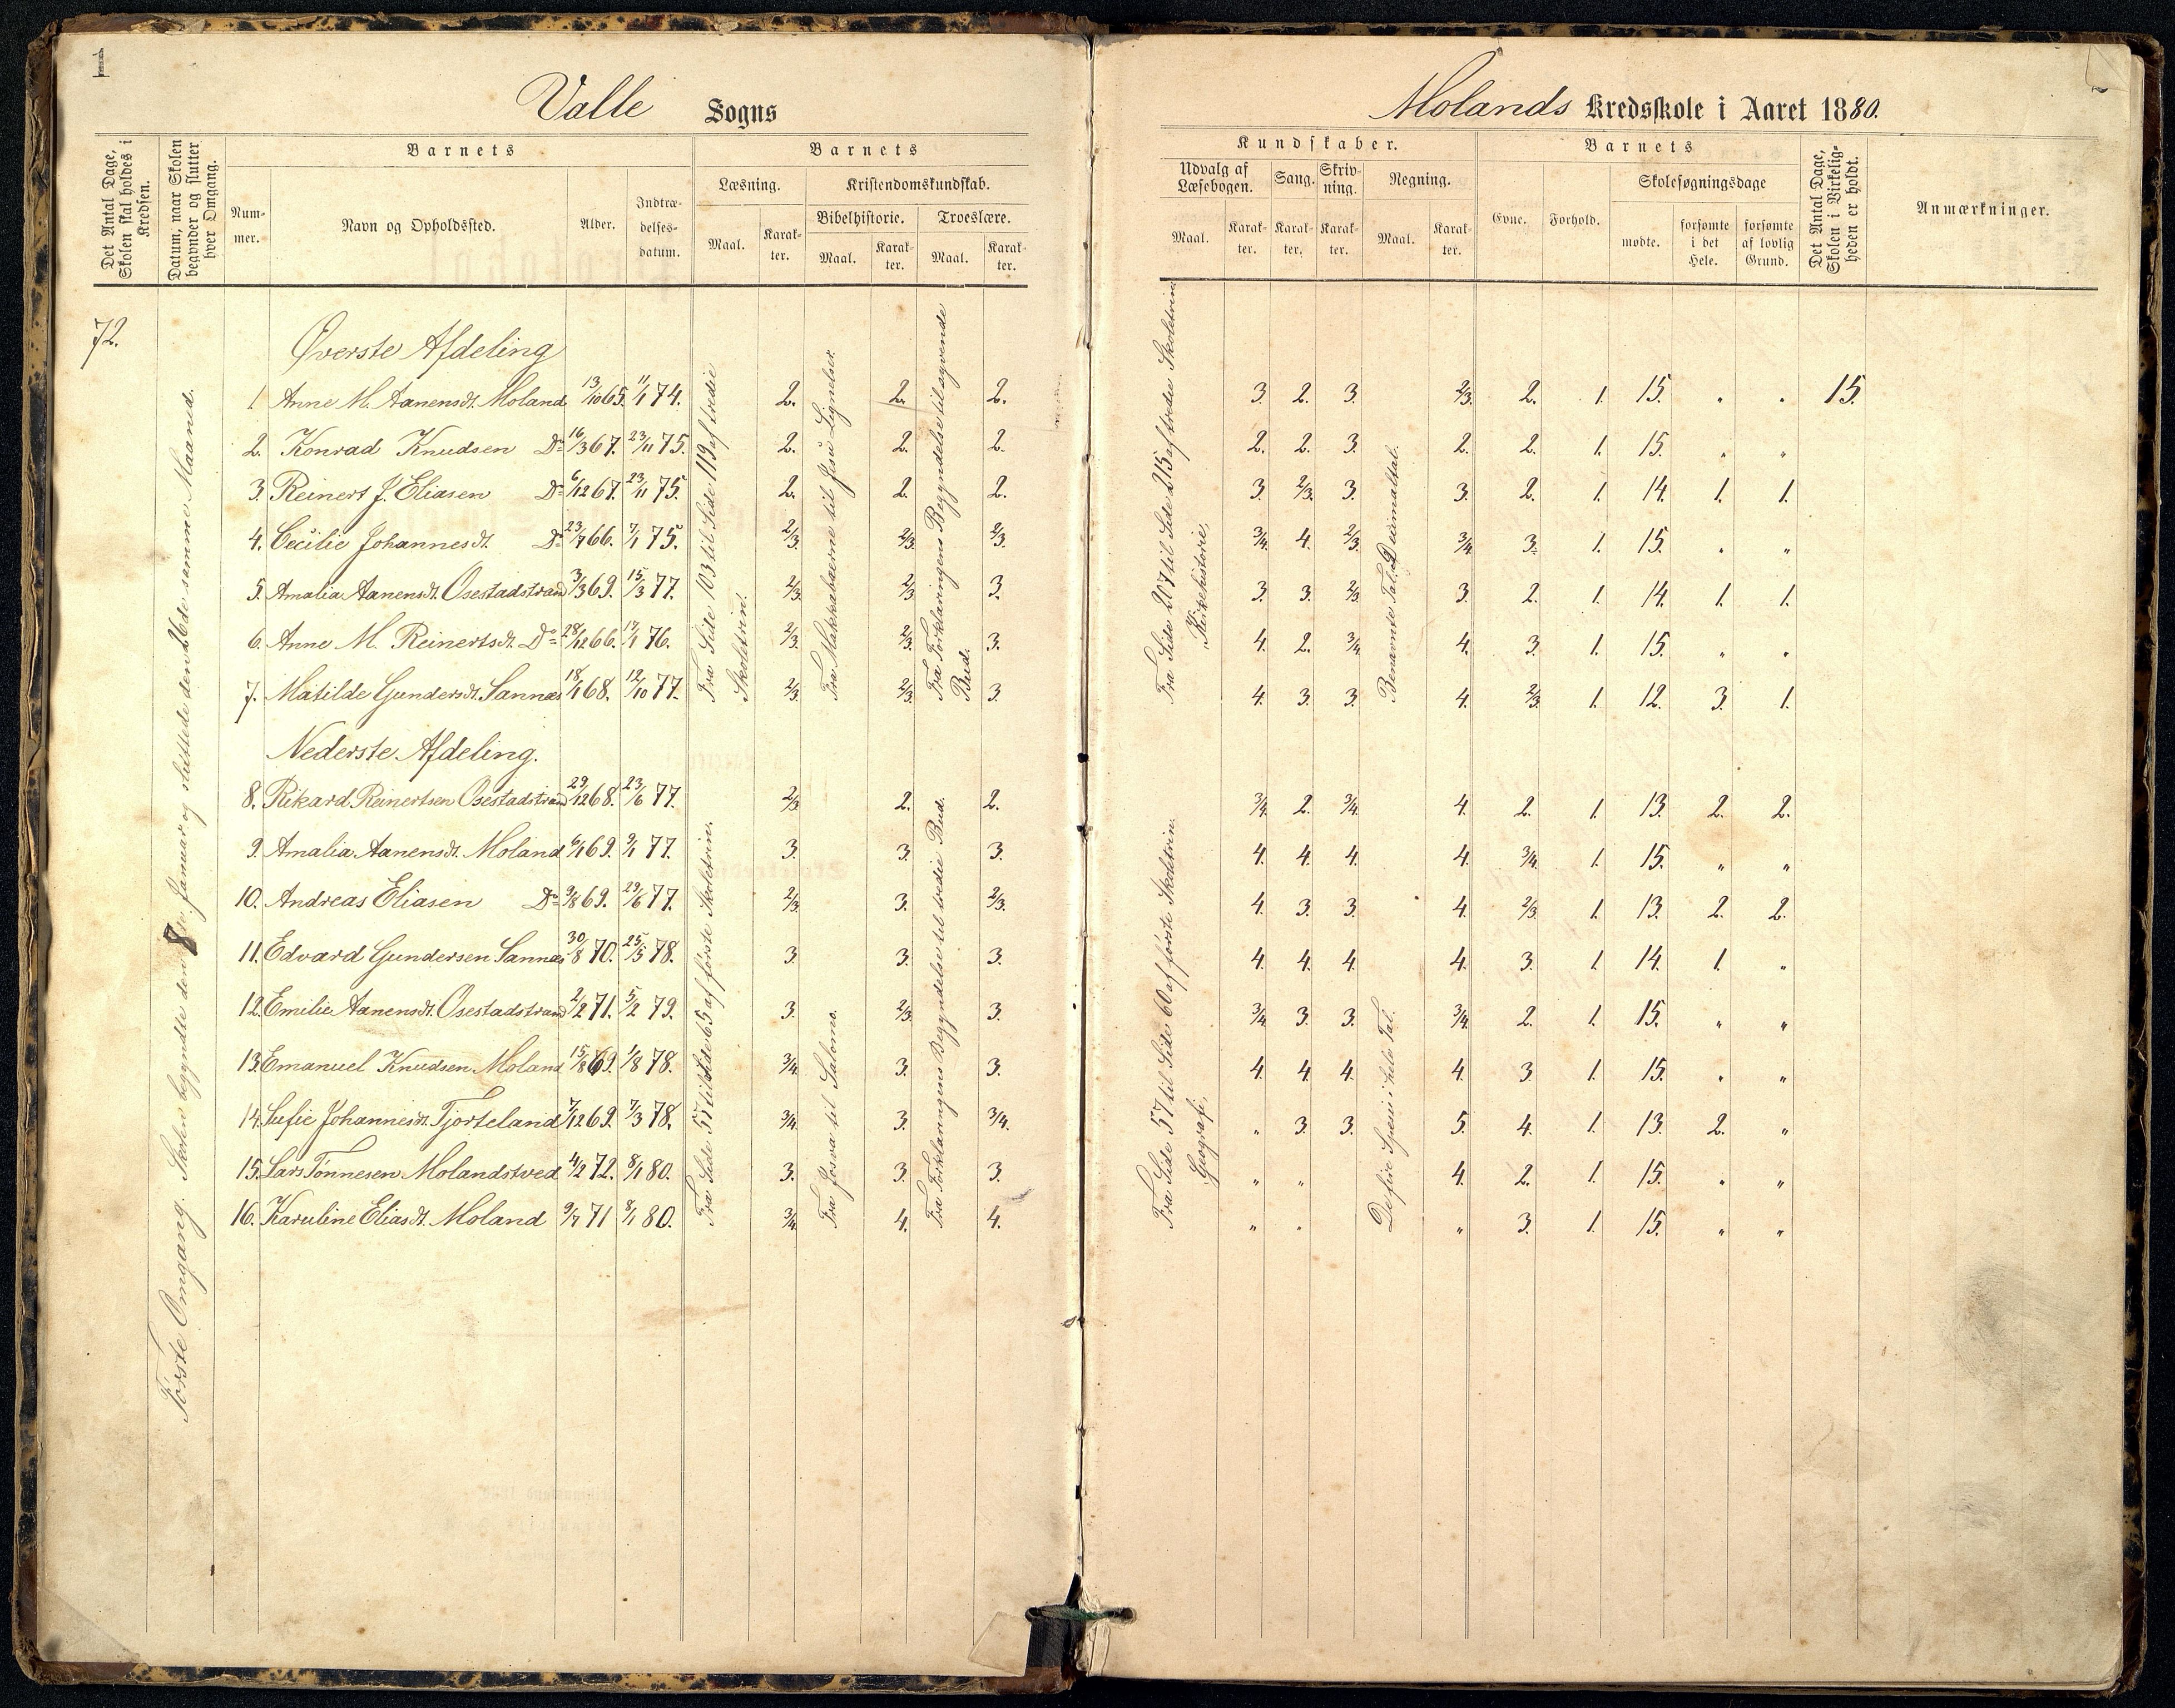 1
Valle Sogns
Det Antal Dage, Skolen skal holdes i Kredsen.
Datum, naar Skolen begynder og slutter hver Omgang.
Barnets
Num-mer.
Navn og Opholdssted.
Alder.
Indtræ-delses-datum.
Barnets
Læsning.
Kristendomskundskab.
Bibelhistorie.
Troeslære.
Maal.
Karak-ter.
Maal.
Karak-ter.
Maal.
Karak-ter.
Molands Kredsskole i Aaret 1880.
Kundskaber.
Udvalg af Læsebogen.
Sang.
Skriv-ning.
Regning.
Maal.
Karak-ter.
Karak-ter.
Karak-ter.
Maal.
Karak-ter.
Barnets
Evne.
Forhold.
Skolesøgningsdage
mødte.
forsømte i det Hele.
forsømte af lovlig Grund.
Det Antal Dage, Skolen i Virkelig-heden er holdt.
Anmærkninger.
72.
Første Omgang. Skolen begyndte den 8de Januar og sluttede den 26de samme Maaned.
Øverste Afdeling
1. Anne M. Aanensdt. Moland 13/10 65. 11/1 74. 2. 2. 2. 3. 2. 3. 2/3. 2. 1. 15. " " 15.
2. Konrad Knudsen Do 16/3 67. 23/11 75. 2. 2. 2. 2. 2. 3. 2. 2. 1. 15. " "
3. Reinert J. Eliasen Do 6/12 67. 23/11 75. 2. 2. 2. 3. 2/3. 3. 3. 2. 1. 14. 1. 1.
4. Cecilie Johannesdt. Do 23/7 66. 7/1 75. 2/3. 2/3. 2/3. 3/4. 4. 2/3. 3/4. 3. 1. 15. " "
5. Amalia Aanensdt. Osestadstrand 3/3 69. 15/3 77. 2/3. 2/3. 3. 3. 3. 2/3. 3. 2. 1. 14. 1. 1.
6. Anne M. Reinertsdt. Do 28/12 66. 17/1 76. 2/3. 2/3. 3. 4. 2. 3/4. 4. 3. 1. 15. " "
7. Matilde Gundersdt. Sannæs 18/1 68. 12/10 77. 2/3. 2/3. 3. 4. 3. 3. 4. 2/3. 1. 12. 3. 1.
Fra Side 103 til Side 119 af tredie Skoletrin.
Fra Makkabæerne til Jesu Lignelser.
Fra Forklaringens Begyndelse til syvende Bud.
Fra Side 207 til Side 215 af tredie Skoletrin. "Kirkehistorie,"
Benævnte Tal. Decimaltal.
Nederste Afdeling.
8. Rikard Reinertsen Osestadstrand 29/12 68. 23/6 77. 2/3. 2. 2. 3/4. 2. 3/4. 4. 2. 1. 13. 2. 2.
9. Amalia Aanensdt. Moland 6/1 69. 9/1 77. 3. 3. 3. 4. 4. 4. 4. 3/4. 1. 15. " "
10. Andreas Eliasen Do 9/8 69. 29/6 77. 2/3. 3. 2/3. 4. 3. 3. 4. 2/3. 1. 13. 2. 2.
11. Edvard Gundersen Sannæs 30/8 70. 25/5 78. 3. 3. 3. 4. 4. 4. 4. 3. 1. 14. 1. "
12. Emilie Aanensdt. Osestadstrand 2/2 71. 5/2 79. 3. 2/3. 3. 3/4. 3. 3. 3/4. 2. 1. 15. " "
13. Emanuel Knudsen Moland 15/8 69. 1/8 78. 3/4. 3. 3. 4. 4. 4. 4. 3. 1. 15. " "
14. Sufie Johannesdt. Tjorteland 7/12 69. 7/3 78. 3/4. 3. 3/4. " 3. 3. 5. 4. 1. 13. 2. "
15. Lars Tønnesen Molandstved 4/2 72. 8/1 80. 3. 3. 3. " " 4. 2. 1. 15. " "
16. Karuline Eliasdt. Moland 9/7 71 8/1 80. 3/4. 4. 4. " " " 3. 1. 15. " "
Fra Side 57 til Side 65 af første Skoletrin.
Fra Josva til Salomo.
Fra Forklaringens Begyndelse til tredie Bud.
Fra Side 57 til Side 60 af første Skoletrin. Geografi,
De fire Speci i hele Tal.